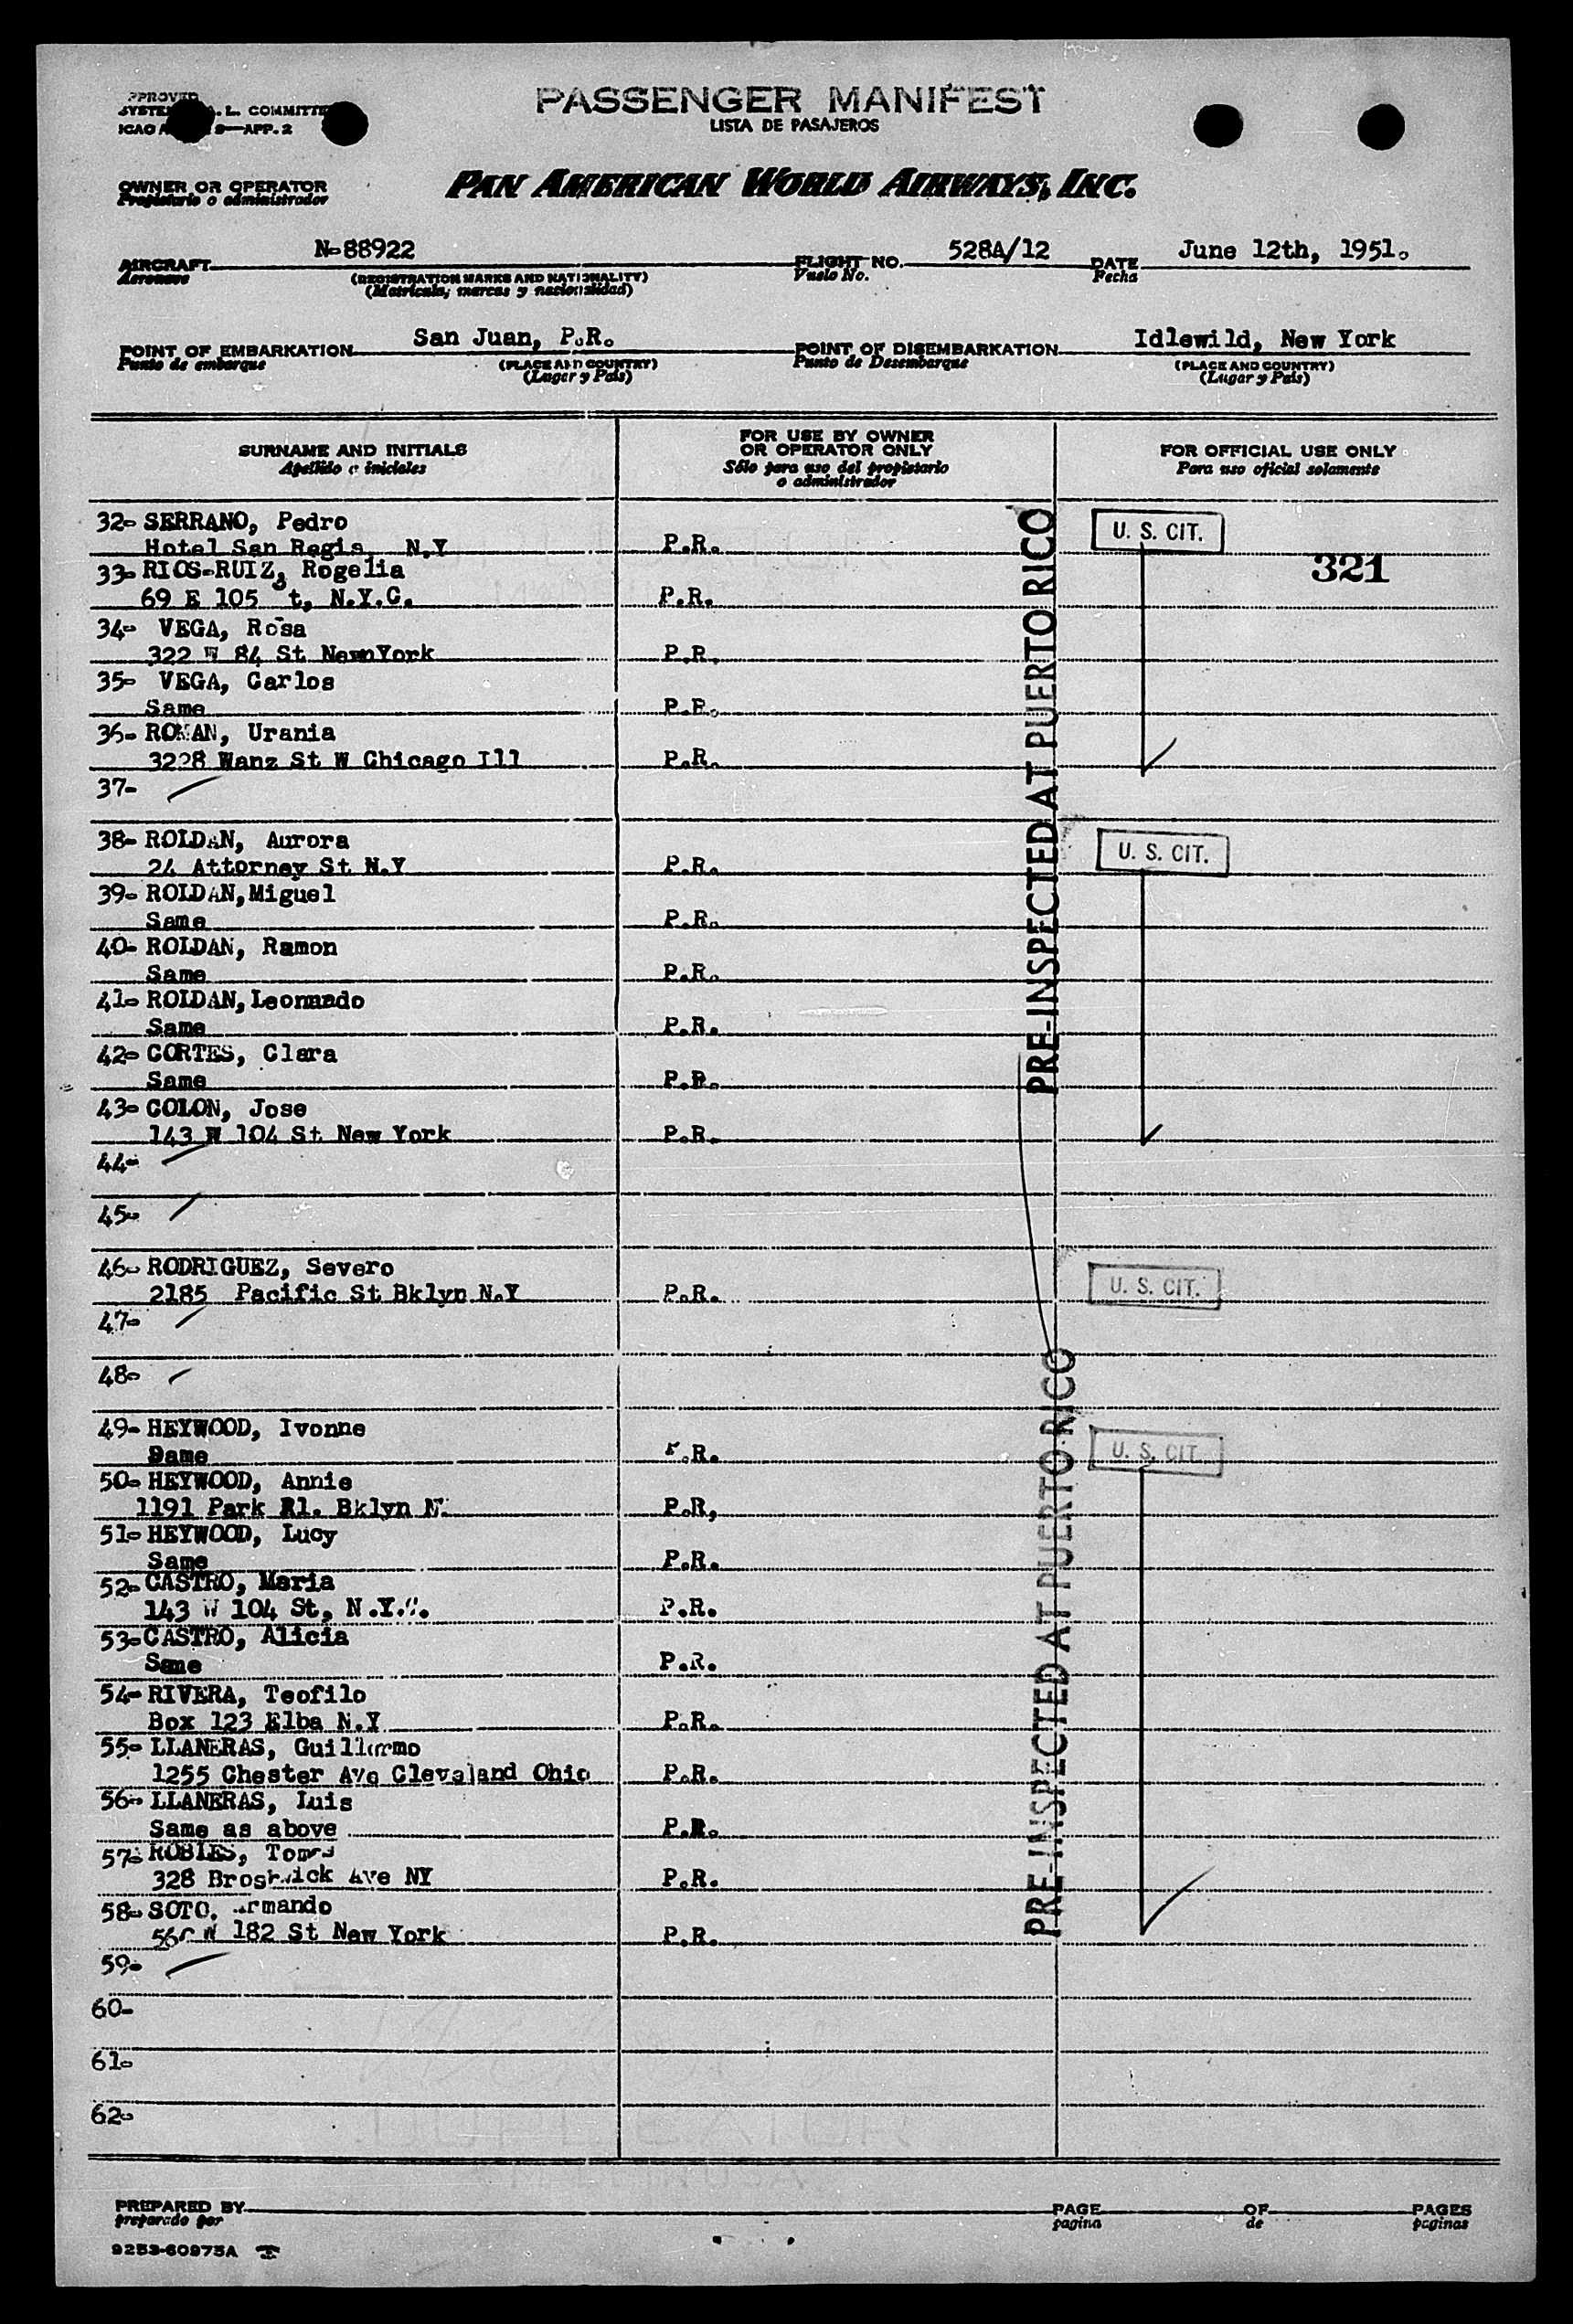 PASSENGER MANIFEST
LISTA DE PASAJEROS
L. COMMITTE
ICAO 9—APP. 2
OWNER OR OPERATOR
Propietario o administrador
PAN AMERICAN WORLD AIRWAYS, INC.
AIRCRAFT N-88922 FLIGHT NO. 528A/12 DATE June 12th, 1951.
Aeronave (REGISTRATION MARKS AND NATIONALITY) Vuelo No. Fecha
(Matricula, marcas y nacionalidad)
POINT OF EMBARKATION San Juan, P.R. POINT OF DISEMBARKATION Idlewild, New York
Punto de embarque (PLACE AND COUNTRY) Punto de Desembarque (PLACE AND COUNTRY)
(Lugar y Pais) (Lugar y Pais)
SURNAME AND INITIALS FOR USE BY OWNER OR OPERATOR ONLY FOR OFFICIAL USE ONLY
Apellido e iniciales Sólo para uso del propietario o administrador Para uso oficial solamente
32- SERRANO, Pedro U. S. CIT.
Hotel San Regis, N.Y P.R.
33- RIOS-RUIZ, Rogelia 321
69 E 105 t, N.Y.C. P.R.
34- VEGA, Rosa
322 W 84 St NewnYork P.R.
35- VEGA, Carlos
Same P.R.
36- ROMAN, Urania
3228 Wanz St W Chicago Ill P.R.
37-
38- ROLDAN, Aurora U. S. CIT.
24 Attorney St N.Y P.R.
39- ROLDAN,Miguel
Same P.R.
40- ROLDAN, Ramon
Same P.R.
41- ROLDAN,
Same P.R.
42- CORTES, Clara
Same P.R.
43- COLON, Jose
143 W 104 St New York P.R.
44-
45-
46- RODRIGUEZ, Severo
2185 Pacific St Bklyn N.Y P.R. U. S. CIT.
47-
48-
49- HEYWOOD, Ivonne
Same P.R. U. S. CIT.
50- HEYWOOD, Annie
1191 Park Bklyn P.R,
51- HEYWOOD, Lucy
Same P.R.
52- CASTRO, Maria
143 W 104 St, N.Y.C. P.R.
53- CASTRO, Alicia
Same P.R.
54- RIVERA, Teofilo
Box 123 Elba N.Y P.R.
55- LLANERAS, Guillermo
1255 Chester Ave Cleveland Ohio P.R.
56- LLANERAS, Luis
Same as above P.R.
57- ROBLES,
328 Ave NY P.R.
58- SOTO,
W 182 St New York P.R.
59-
60-
61-
62-
PRE-INSPECTED AT PUERTO RICO
PRE-INSPECTED AT PUERTO RICO
PREPARED BY PAGE OF PAGES
preparado por pagina de paginas
9253-60975A